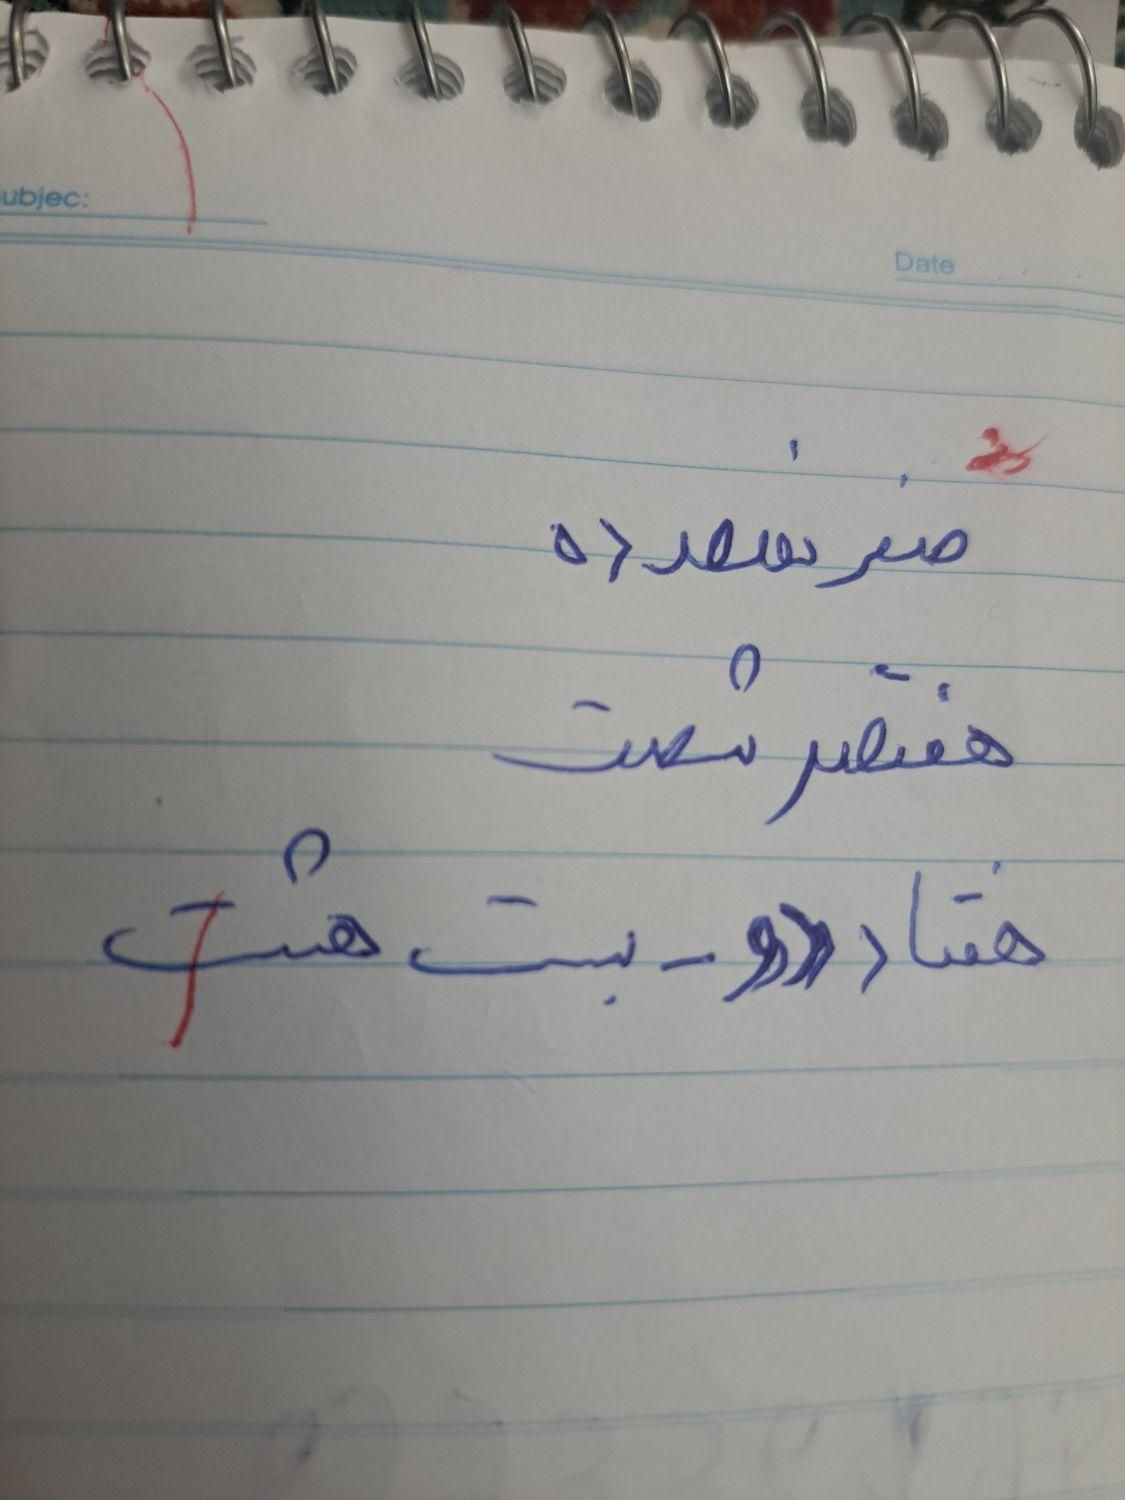 Subjec:
Date
صفر نهصد ده
هفتصد شصت
هفتاد دو - بیست هشت